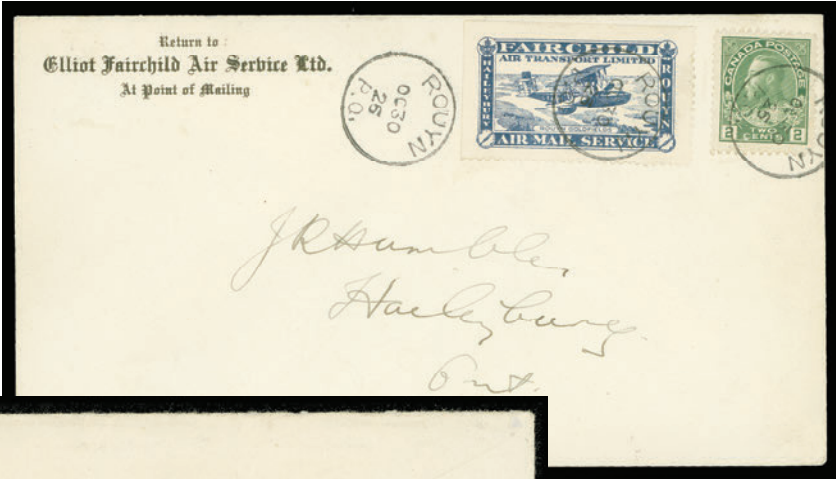 Return to :
Elliot Fairchild Air Service Ltd.
At Point of Mailing
ROUYN
OC 30
26
P.Q.
FAIRCHILD
AIR TRANSPORT LIMITED
HAILEYBURY
ROUYN
ROUYN GOLDFIELDS
AIR MAIL SERVICE
ROUYN
CANADA POSTAGE
2 TWO CENTS 2
ROUYN
J R Humble,
Haileybury
Ont.